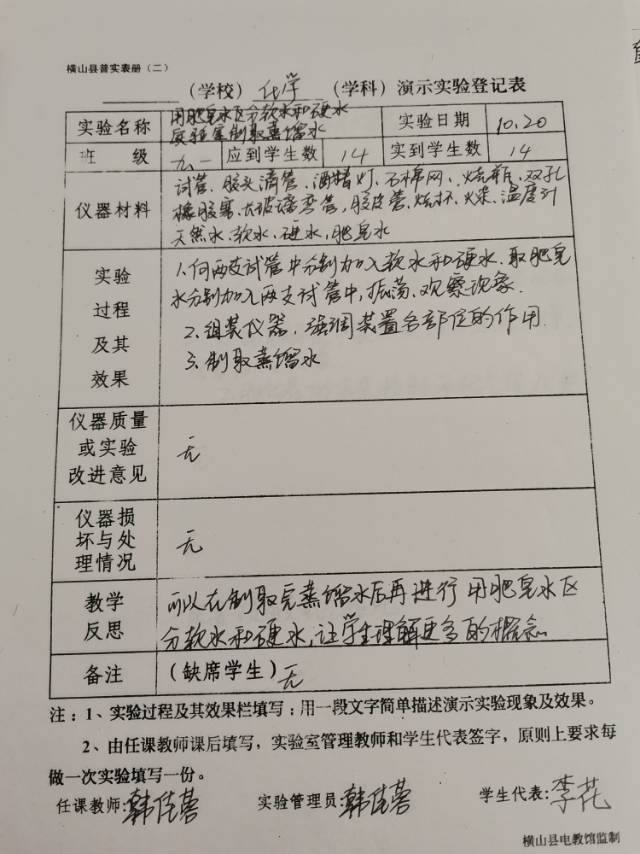 横山县普实表册（二）
（学校） 化学 （学科）演示实验登记表
实验名称 用肥皂水区分软水和硬水 实验室制取蒸馏水 实验日期 10.20
班 级 九一 应到学生数 14 实到学生数 14
仪器材料 试管、胶头滴管、酒精灯、石棉网、烧瓶、双孔
橡胶塞、长玻璃弯管、胶皮管、烧杯、火柴、温度计
天然水、软水、硬水、肥皂水
实验
过程
及其
效果
1.向两支试管中分别加入软水和硬水、取肥皂
水分别加入两支试管中,振荡、观察现象.
2.组装仪器、强调装置各部位的作用.
3.制取蒸馏水
仪器质量
或实验
改进意见
无
仪器损
坏与处
理情况
无
教学
反思
可以在制取完蒸馏水后再进行用肥皂水区
分软水和硬水,让学生理解更多的概念
备注 （缺席学生）无
注：1、实验过程及其效果栏填写：用一段文字简单描述演示实验现象及效果。
2、由任课教师课后填写，实验室管理教师和学生代表签字，原则上要求每
做一次实验填写一份。
任课教师:韩佳蓉 实验管理员:韩佳蓉 学生代表:李花
横山县电教馆监制